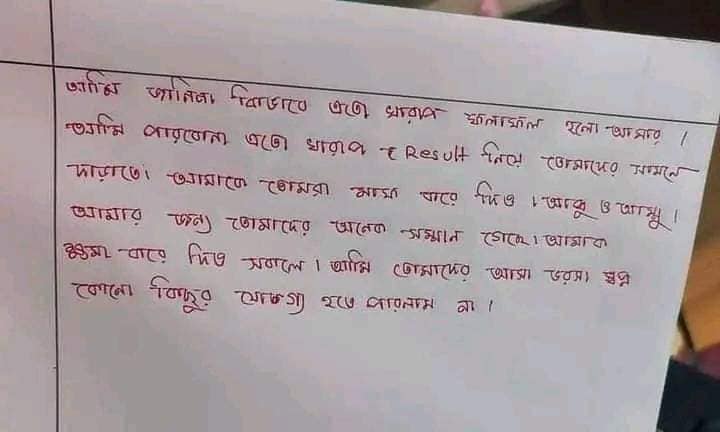 আমি জানিনা কিভাবে এতো খারাপ ফলাফল হলো আমার।
আমি পারবোনা এতো খারাপ Result নিয়ে তোমাদের সামনে
দাড়াতে। আমাকে তোমরা মাফ করে দিও। আব্বু ও আম্মু।
আমার জন্য তোমাদের অনেক সম্মান গেছে। আমাক
ক্ষমা করে দিও সকলে। আমি তোমাদের আসা ভরসা স্বপ্ন
কোনো কিছুর যোগ্য হতে পারলাম না।